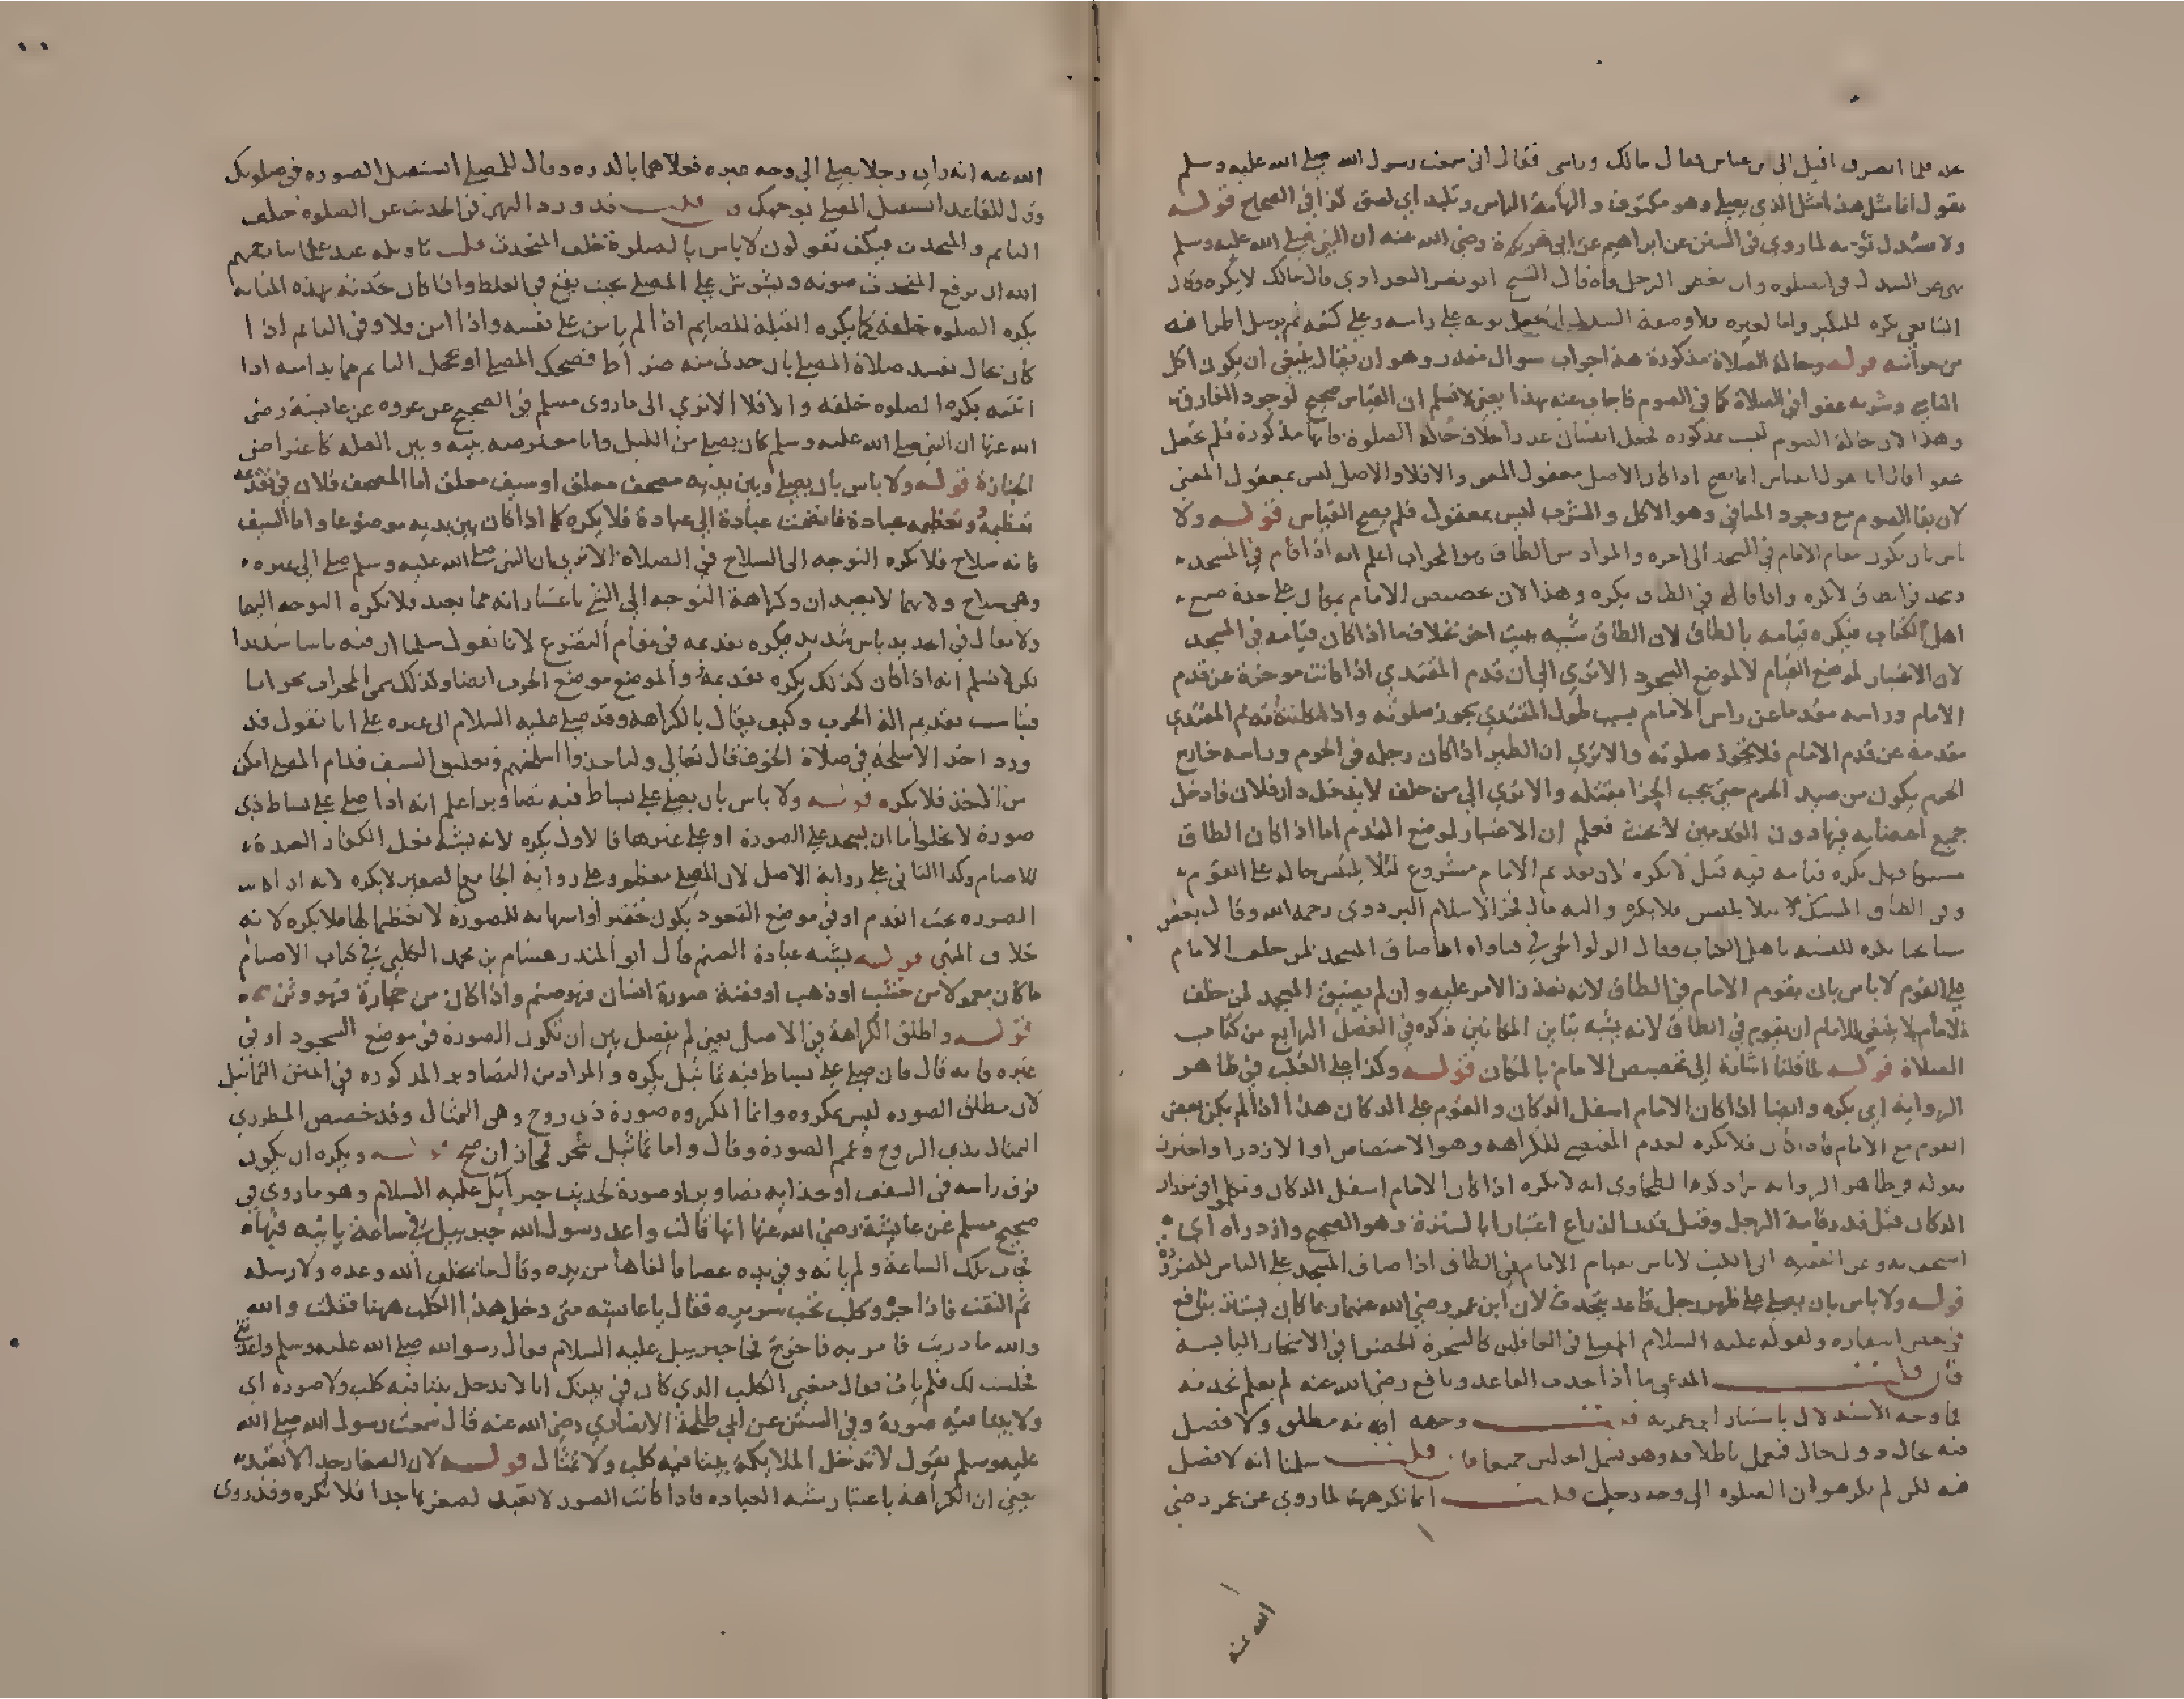 عنه فلما انصرف اقبل الى ابن عباس فقال مالك وراسى فقال انى سمعت رسول الله صلى الله عليه وسلم
يقول انما مثل هذا مثل الذي يصلي وهو مكتوف والهامة الراس وتلبد اي لصق كذا في الصحاح قوله
ولا يسدل ثوبه لما روي في السنن عن ابراهيم عن ابي هريرة رضي الله عنه ان النبي صلى الله عليه وسلم
نهى عن السدل في الصلوه وان يغطى الرجل فاه قال الشيخ ابو نصر البغدادي قال مالك لا يكره وقال
الشافعي يكره للتكبر واما لغيره فلا وصفة السدل ان يجعل ثوبه على راسه وعلى كتفه ثم يرسل اطرافه
من جوانبه قوله وحالة الصلاة مذكورة هذا جواب سوال مقدر وهو ان يقال ينبغي ان يكون اكل
الناسي وشربه عفوا في الصلاة كما في الصوم فاجاب عنه بهذا يعني لا نسلم ان القياس صحيح لوجود الفارق
وهذا لان حالة الصوم ليست بمذكورة فجعل النسيان عذرا بخلاف حالة الصلوة فانها مذكورة فلم يجعل
عفوا فان انا نقول القياس انما يصح اذا كان الاصل معقول المعنى والا فلا والاصل ليس بمعقول المعنى
لان بقا الصوم مع وجود المنافي وهو الاكل والشرب ليس بمعقول فلم يصح القياس قوله ولا
باس بان يكون مقام الامام في المسجد الى اخره والمراد من الطاق هو المحراب اعلم انه اذا قام في المسجد
وسجد في الطاق لا يكره واذا قام في الطاق يكره وهذا لان تخصيص الامام بمكان على حدة صنع
اهل الكتاب فيكره قيامه بالطاق لان الطاق شبيه ببيت اخر بخلاف ما اذا كان قيامه في المسجد
لان الاعتبار لموضع القيام لا لموضع السجود الا ترى الى ان قدم المقتدي اذا كانت موخرة عن قدم
الامام وراسه مقدما عن راس الامام بسبب طول المقتدي يجوز صلوته واذا كانت قدم المقتدي
مقدمة عن قدم الامام فلا يجوز صلوته والا ترى ان الطير اذا كان رجله في الحرم وراسه خارج
الحرم يكون من صيد الحرم حتى يجب الجزا بقتله والا ترى الى من حلف لا يدخل دار فلان فادخل
جميع اعضايه فيها دون القدمين لا يحنث فعلم ان الاعتبار لموضع القدم اما اذا كان الطاق
فهل يكره قيامه فيه قيل لا يكره لان تقديم الامام مشروع لئلا يلتبس حاله على القوم
وفي الطاق المشبك لا يلتبس فلا يكره واليه مال فخر الاسلام البزدوي رحمه الله وقال بعض
مشايخنا يكره للتشبه باهل الكتاب وقال الولوالجي في فتاواه اذا ضاق المسجد لمن خلف الامام
على القوم لا باس بان يقوم الامام في الطاق لانه تعذر الامر عليه وان لم يضيق المسجد لمن خلف
الامام لا ينبغي للامام ان يقوم في الطاق لانه يشبه تباين المكانين ذكره في الفصل الرابع من كتاب
الصلاة قوله لما قلنا اشارة الى تخصيص الامام بالمكان قوله وكذا على القلب في ظاهر
الرواية اي يكره وايضا اذا كان الامام اسفل الدكان والقوم على الدكان هذا اذا لم يكن بعض
القوم مع الامام فاذا كان فلا يكره لعدم المقتضي للكراهه وهو الاختصاص او الازدرا واحترز
بقوله في ظاهر الروايه عما ذكره الطحاوي انه لا يكره اذا كان الامام اسفل الدكان وتكلموا في مقدار
الدكان قيل قدر قامة الرجل وقيل قدر الذراع اعتبارا بالسترة وهو الصحيح وازدراه اي
استخف به وعن الفقيه ابي الليث لا باس بقيام الامام في الطاق اذا ضاق المسجد على الناس للضرورة
قوله ولا باس بان يصلي على ظهر رجل قاعد يتحدث لان ابن عمر رضي الله عنهما ربما كان يستتر بنافع
في بعض اسفاره ولقوله عليه السلام المصلي في الغافلين كالشجرة الخضرا في الاشجار اليابسة
فان قلت المدعى ما اذا حدث القاعد ونافع رضي الله عنه لم يعلم تحدثه
فما وجه الاستدلال باستتار ابن عمر به قلت وجهه انه مطلق ولا فصل
فيه حال دون حال فيعمل باطلاقه وهو يشمل الحالين جميعا فان قلت سلمنا انه لا فصل
فيه لكن لم يكرهوا ان الصلوه الى وجه رجل قلت انما تكره لما روي عن عمر رضي
الله عنه
الله عنه انه راى رجلا يصلي الى وجه غيره فعلاهما بالدره وقال للمصلي استقبل الصوره في صلوتك
وقال للقاعد استقبل المصلي بوجهك فان قلت قد ورد النهي في الحديث عن الصلوة خلف
النايم والمتحدث فكيف تقولون لا باس بالصلوة خلف المتحدث قلت تاويله عند علمائنا رحمهم
الله ان يرفع المتحدث صوته ويشوش على المصلي بحيث يقع في الغلط واذا كان حديثه بهذه المثابه
يكره الصلوه خلفه كما يكره القبلة للصايم اذا لم يامن على نفسه واذا امن فلا وفي النايم اذا
كان بحال يفسد صلاة المصلي بان حدث منه ضراط فضحك المصلي او يخجل النايم مما بدا منه اذا
انتبه يكره الصلوه خلفه والا فلا الا ترى الى ما روى مسلم في الصحيح عن عروه عن عايشة رضي
الله عنها ان النبي صلى الله عليه وسلم كان يصلي من الليل وانا معترضه بينه وبين القبله كاعتراض
الجنازة قوله ولا باس بان يصلي وبين يديه مصحف معلق او سيف معلق اما المصحف فلان في تقديمه
تعظيمه وتعظيمه عبادة فانضمت عبادة الى عبادة فلا يكره كما اذا كان بين يديه موضوعا واما السيف
فانه سلاح فلا يكره التوجه الى السلاح في الصلاة الا ترى ان النبي صلى الله عليه وسلم صلى الى عنزه
وهي سلاح ولانهما لا يعبدان وكراهة التوجه الى الشي باعتبار انه مما يعبد فلا يكره التوجه اليهما
ولا يقال في الحديد باس شديد فيكره تقديمه في مقام التضرع لانا نقول سلمنا ان فيه باسا شديدا
لكن لا نسلم انه اذا كان كذلك يكره تقديمه والموضع موضع الحرب ايضا ولذلك سمي المحراب محرابا
فيناسب تقديم الة الحرب وكيف يقال بالكراهه وقد صلى عليه السلام الى عنزه على انا نقول قد
ورد اخذ الاسلحة في صلاة الخوف قال تعالى ولياخذوا اسلحتهم وتعليق السيف قدام المصلي امكن
من الاخذ فلا يكره قوله ولا باس بان يصلي على بساط فيه تصاوير اعلم انه اذا صلى على بساط ذي
صورة لا يخلوا ما ان يسجد على الصورة او على غيرها فالاول يكره لانه يشبه فعل الكفار العبدة
للاصنام وكذا الثاني على رواية الاصل لان المصلي معظم وعلى رواية الجامع الصغير لا يكره لانه اذا كانت
الصوره تحت القدم او في موضع القعود يكون تحقيرا واستهانه للصورة لا تعظيما لها فلا يكره لانه
خلاف المنهي قوله يشبه عبادة الصنم قال ابو المنذر هشام بن محمد الكلبي في كتاب الاصنام
ما كان معمولا من خشب او ذهب او فضة صورة انسان فهو صنم واذا كان من حجارة فهو وثن
قوله واطلق الكراهة في الاصل يعني لم يفصل بين ان تكون الصورة في موضع السجود او في
غيره فانه قال فان صلى على بساط فيه تماثيل يكره والمراد من التصاوير المذكوره في المتن التماثيل
لان مطلق الصوره ليس بمكروه وانما المكروه صورة ذي روح وهي التمثال وقد خصص المطرزي
التمثال بذي الروح وعمم الصورة وقال واما تماثيل شجر فمجاز ان صح قوله ويكره ان يكون
فوق راسه في السقف او بحذايه تصاوير او صورة لحديث جبرائيل عليه السلام وهو ما روي في
صحيح مسلم عن عايشة رضي الله عنها انها قالت واعد رسول الله جبريل في ساعة ياتيه فيها
فجات تلك الساعة ولم ياته وفي يده عصا فالقاها من يده وقال ما يخلف الله وعده ولا رسله
ثم التفت فاذا جرو كلب تحت سريره فقال يا عايشه متى دخل هذا الكلب ههنا فقلت والله
والله ما دريت فامر به فاخرج فجا جبريل عليه السلام فقال رسول الله صلى الله عليه وسلم واعدتني
فجلست لك فلم يات فقال منعني الكلب الذي كان في بيتك انا لا ندخل بيتا فيه كلب ولا صوره اي
ولا بيتا فيه صورة وفي السنن عن ابي طلحة الانصاري رضي الله عنه قال سمعت رسول الله صلى الله
عليه وسلم يقول لا تدخل الملايكة بيتا فيه كلب ولا تمثال قوله لان الصغار جدا لا تعبد
يعني ان الكراهة باعتبار شبه العباده فاذا كانت الصور لا تعبد لصغرها جدا فلا يكره وقد روى